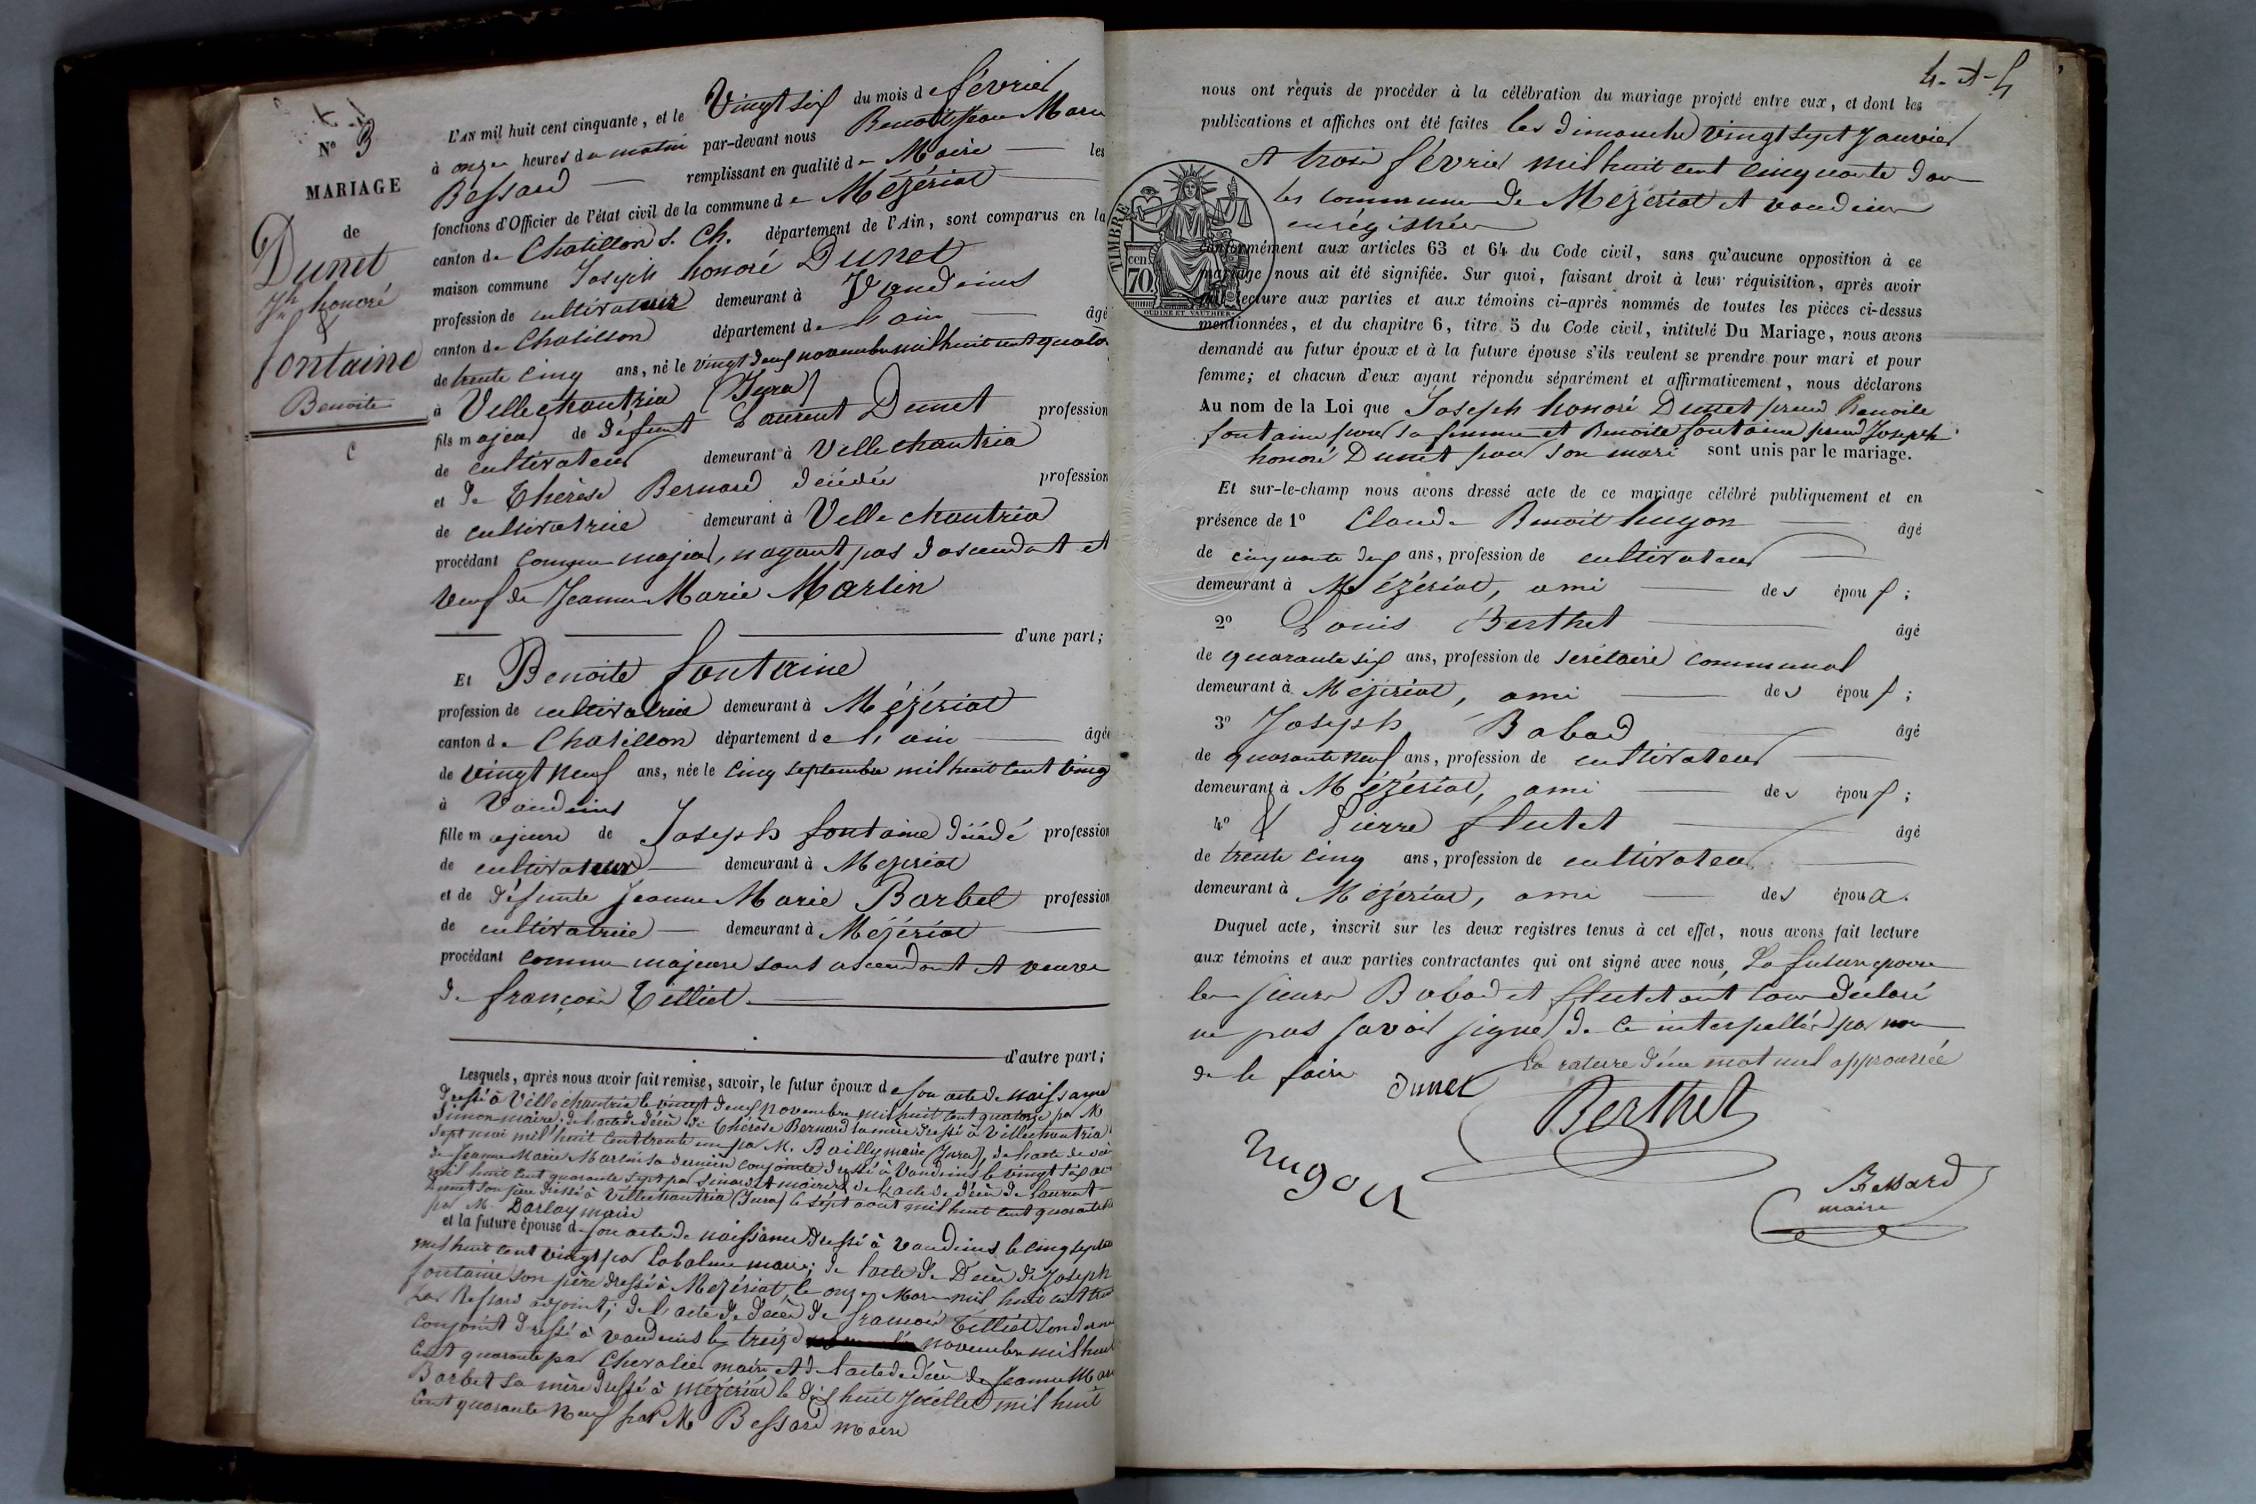 Nº 3
MARIAGE
de
Dunet
Jh honoré
&
fontaine
Benoite
L'AN mil huit cent cinquante, et le Vingt six du mois de février
à onze heures du matin par-devant nous Benoit Jean Marie
Bessard remplissant en qualité de Maire les
fonctions d'Officier de l'état civil de la commune de Mézériat
canton de Chatillon s. Ch. département de l'Ain, sont comparus en la
maison commune Joseph honoré Dunet
profession de cultivateur demeurant à Vandeins
canton de Chatillon département de l'ain âgé
de trente cinq ans, né le vingt deux novembre mil huit cent quato
à Villechantria (Jura)
fils majeur de défunt Laurent Dunet profession
de cultivateur demeurant à Villechantria
et de Thérèse Bernard décédée profession
de cultivatrice demeurant à Villechantria
procédant comme majeur, n'ayant pas d'ascendant et
veuf de Jeanne Marie Marlin
d'une part;
Et Benoite fontaine
profession de cultivatrice demeurant à Mézériat
canton de Chatillon département de l'ain âgée
de vingt neuf ans, née le cinq septembre mil huit cent ving
à Vandeins
fille majeure de Joseph fontaine décédé profession
de cultivateur demeurant à Mézériat
et de défunte Jeanne Marie Barbet profession
de cultivatrice demeurant à Mézériat
procédant comme majeure sans ascendant et veuve
de françois Tilliet
d'autre part;
Lesquels, après nous avoir fait remise, savoir, le futur époux de son acte de naissance
dressé à Villechantria le vingt deux novembre mil huit cent quatorze par M
Simon maire; de l'acte de décès de Thérèse Bernard sa mère dressé à Villechantria
sept mai mil huit cent trente un par M. Bailly maire (Jura), de l'acte de décè
de Jeanne Marie Marlin sa dernière conjointe dressé à Vandeins le vingt six
mil huit cent quarante sept par maire & de l'acte de décès de laurent
Dunet son père dressé à Villechantria (Jura) le sept aout mil huit cent quarante
par M. Darlay maire
et la future épouse de son acte de naissance dressé à Vandeins le cinq septem
mil huit cent vingt par Labalme maire; de l'acte de Décès de Joseph
fontaine son père dressé à Mézériat le onze Mars mil huit cent
par Bessard adjoint; de l'acte de décès de francois Tilliet son dernier
conjoint dressé à Vandeins le treize novembre mil huit
cent quarante par Chevalier maire et de l'acte de décès de Jeanne Mar
Barbet sa mère dressé à Mézériat le dix huit Juillet mil huit
cent quarante neuf par M Bessard maire
nous ont requis de procéder à la célébration du mariage projeté entre eux, et dont les
publications et affiches ont été faites les dimanche vingt sept Janvier
et trois février mil huit cent cinquante dans
les communes de Mézériat et vandeins
enrégistrées
TIMBRE
cen
70
OUDINÉ ET VAUTHIER
conformément aux articles 63 et 64 du Code civil, sans qu'aucune opposition à ce
mariage nous ait été signifiée. Sur quoi, faisant droit à leur réquisition, après avoir
fait lecture aux parties et aux témoins ci-après nommés de toutes les pièces ci-dessus
mentionnées, et du chapitre 6, titre 5 du Code civil, intitulé Du Mariage, nous avons
demandé au futur époux et à la future épouse s'ils veulent se prendre pour mari et pour
femme; et chacun d'eux ayant répondu séparément et affirmativement, nous déclarons
Au nom de la Loi que Joseph honoré Dunet prend Benoite
fontaine pour sa femme et Benoite fontaine prend Joseph
honoré Dunet pour son mari sont unis par le mariage.
Et sur-le-champ nous avons dressé acte de ce mariage célébré publiquement et en
présence de 1º Claude Benoit hugon âgé
de cinquante deux ans, profession de cultivateur
demeurant à Mézériat, ami des époux;
2º Louis Berthet âgé
de quarante six ans, profession de secrétaire communal
demeurant à Mézériat, ami des époux;
3º Joseph Babad âgé
de quarante neuf ans, profession de cultivateur
demeurant à Mézériat, ami des époux;
4º & Pierre flutet âgé
de trente cinq ans, profession de cultivateur
demeurant à Mézériat, ami des époux.
Duquel acte, inscrit sur les deux registres tenus à cet effet, nous avons fait lecture
aux témoins et aux parties contractantes qui ont signé avec nous, La future épouse
les sieurs Babad et flutet ont tous déclaré
ne pas savoir signer de ce interpellés par nous
de le faire La rature d'un mot nul approuvée
Dunet
Berthet
hugon
Bessard
maire